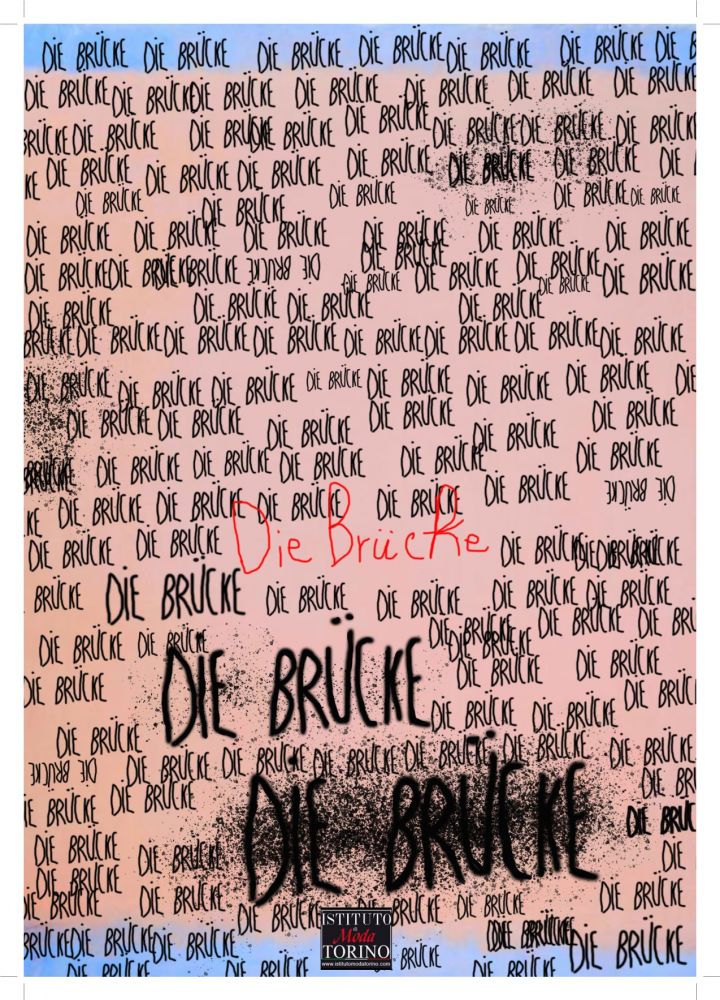 DIE BRÜCKE DIE BRÜCKE DIE BRÜCKE DIE BRÜCKE DIE BRÜCKE DIE BRÜCKE DIE B
DIE BRÜCKE DIE BRÜCKE DIE BRÜCKE DIE BRÜCKE DIE BRÜCKE DIE BRÜCKE DIE BRÜCKE
BRÜCKE DIE BRÜCKE DIE BRÜCKE DIE BRÜCKE DIE BRÜCKE DIE BRÜCKE DIE BRÜCKE DIE BRÜCK
KE DIE BRÜCKE DIE BRÜCKE DIE BRÜCKE DIE BRÜCKE DIE BRÜCKE DIE BRÜCKE DIE
DIE BRÜCKE DIE BRÜCKE DIE BRÜCKE DIE BRÜCKE DIE BRÜCKE DIE BRÜCKE
DIE BRÜCKE DIE BRÜCKE DIE BRÜCKE DIE BRÜCKE DIE BRÜCKE DIE BRÜCKE
DIE BRÜCKE DIE BRÜCKE DIE BRÜCKE DIE BRÜCKE DIE BRÜCKE DIE BRÜCKE DIE BRÜCKE DIE BRÜCKE
DIE BRÜCKE DIE BRÜCKE DIE BRÜCKE DIE BRÜCKE DIE BRÜCKE DIE BRÜCKE
BRÜCKE DIE BRÜCKE DIE BRÜCKE DIE BRÜCKE DIE BRÜCKE DIE BRÜCKE DIE BRÜCKE DIE BRÜCKE
DIE BRÜCKE DIE BRÜCKE DIE BRÜCKE DIE BRÜCKE DIE BRÜCKE DIE BRÜCKE DIE BRÜCKE DIE
DIE BRÜCKE DIE BRÜCKE DIE BRÜCKE DIE BRÜCKE DIE BRÜCKE DIE BRÜCKE
BRÜCKE DIE BRÜCKE DIE BRÜCKE DIE BRÜCKE DIE BRÜCKE DIE BRÜCKE
KE DIE BRÜCKE DIE BRÜCKE DIE BRÜCKE DIE BRÜCKE DIE BRÜCKE DIE BRÜCKE
Die Brücke
DIE BRÜCKE DIE BRÜCKE DIE BRÜCKE DIE BRÜCKE
BRÜCKE DIE BRÜCKE DIE BRÜCKE DIE BRÜCKE DIE BRÜCKE DIE BRÜCKE
DIE BRÜCKE DIE BRÜCKE DIE BRÜCKE DIE BRÜCKE DIE BRÜCKE DIE BRÜ
DIE BRÜCKE DIE BRÜCKE DIE BRÜCKE DIE BRÜCKE
DIE BRÜCKE
DIE BRÜCKE DIE BRÜCKE DIE BRÜCKE
DIE BRÜCKE DIE BRÜCKE DIE BRÜCKE DIE BRÜCKE DIE BRÜCKE DIE BRÜCKE DIE BRÜCKE
DIE BRÜCKE DIE BR
DIE BRÜCKE
IE BRÜCKE DIE BRÜCKE DIE BRÜC
DIE BRÜCKE DIE BRÜCKE DIE
DIE BRÜCKE
DIE BRÜCKE DIE BRÜCKE DIE BRÜCKE DIE BRÜCKE DIE BRÜCKE
BRÜCKE DIE BRÜCKE DIE BRÜCKE DIE BRÜCKE DIE BRÜCKE
DIE BRÜCKE DIE BRÜCKE BRÜCKE DIE BRÜCKE
ISTITUTO
Moda
TORINO
www.istitutomodatorino.com